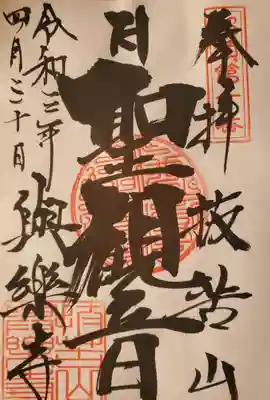 奉拝 抜苦山
聖観音
與樂寺
令和三年
四月三十日